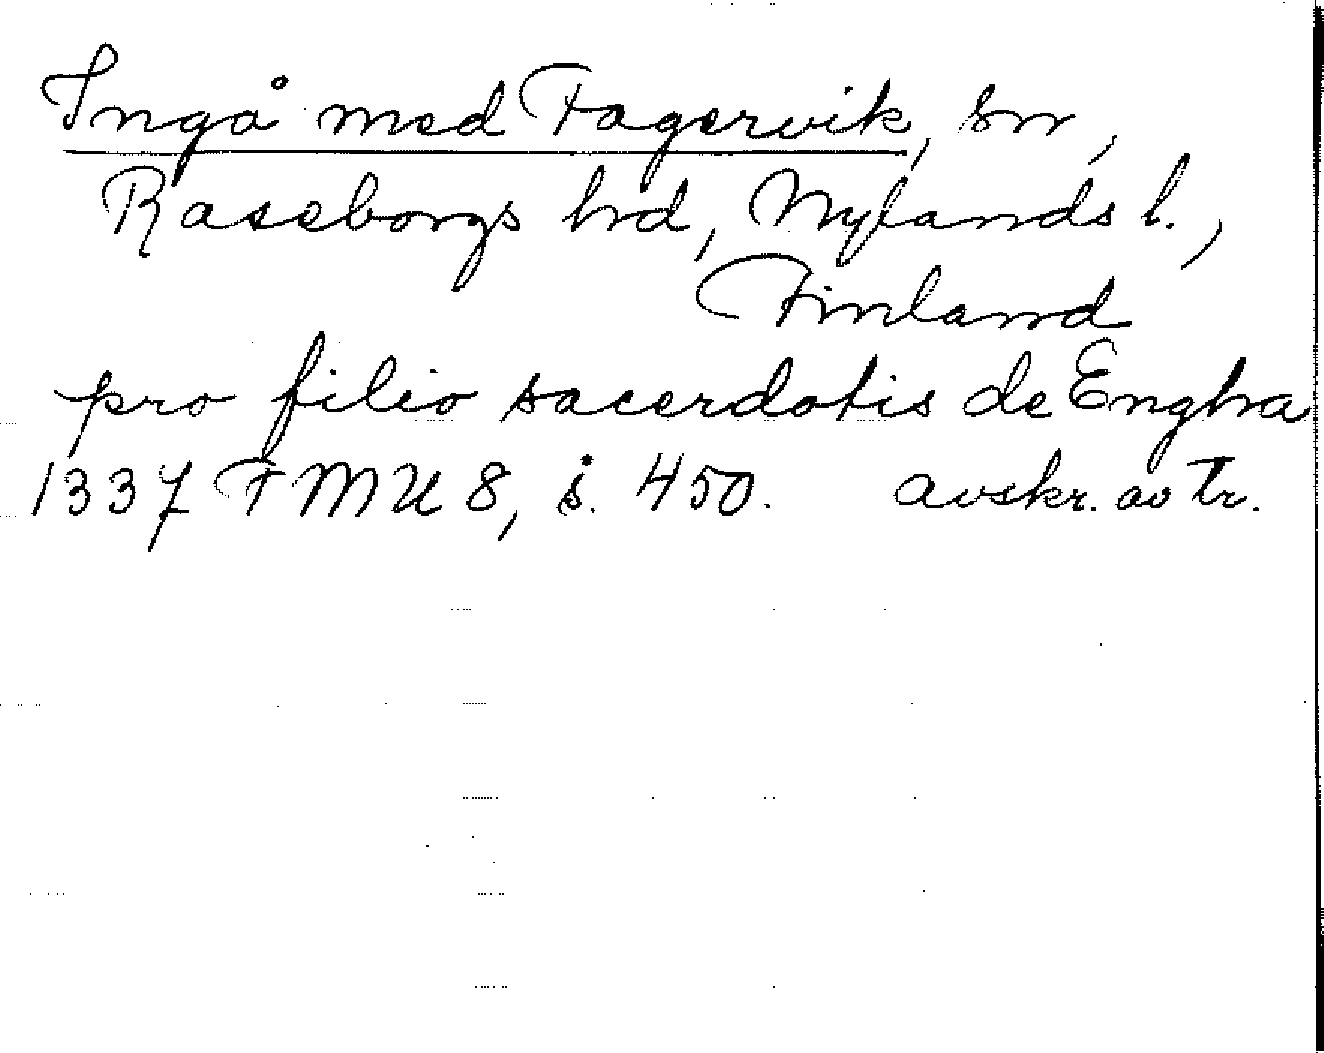 Ingå med Fagervik, sn,
Raseborgs hrd, Nylands l.,
Finland
pro filio sacerdotis de Engha
1337 FMU 8, s. 450. avskr. av tr.